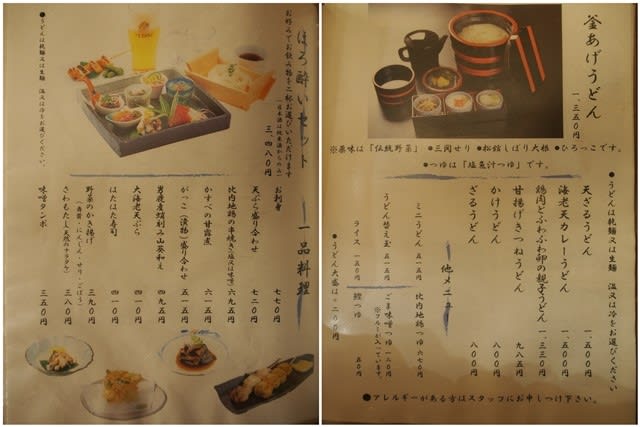 ほろ酔いセット
お好みでお飲み物を二杯お選びいただけます
(日本酒は純米酒からのみ)
三、四八〇円
●うどんは乾麺又は生麺 温又は冷をお選びください。
一品料理
お刺身 七七〇円
天ぷら盛り合わせ 七二〇円
比内地鶏の串焼き(塩又は味噌) 六九五円
かすべの甘露煮 六一五円
がっこ(漬物)盛り合わせ 五一五円
男鹿産蛸刻み山葵和え 四九五円
大海老天ぷら 四一〇円
はたはた寿司 四一〇円
野菜のかき揚げ 三九〇円
(舞茸・にんじん・せり・ごぼう)
さわもたし(天然のナラタケ) 三八〇円
味噌タンポ 三五〇円
釜あげうどん
一、三五〇円
※薬味は「伝統野菜」●三関せり ●松館しぼり大根 ●ひろっこです。
●つゆは「塩魚汁つゆ」です。
●うどんは乾麺又は生麺 温又は冷をお選びください。
天ざるうどん 一、五〇〇円
海老天カレーうどん 一、五〇〇円
鶏肉とふわふわ卵の親子うどん 一、三三〇円
甘揚げきつねうどん 九八五円
かけうどん 八〇〇円
ざるうどん 八〇〇円
他メニュー
ミニうどん 五一五円
うどん替え玉 五一五円
ライス 一五〇円
●うどん大盛は+二〇〇円
比内地鶏つゆ 六七〇円
ごま味噌つゆ 二一〇円
※フルーツが入っています。
鰹つゆ 五〇円
●アレルギーがある方はスタッフにお申しつけ下さい。